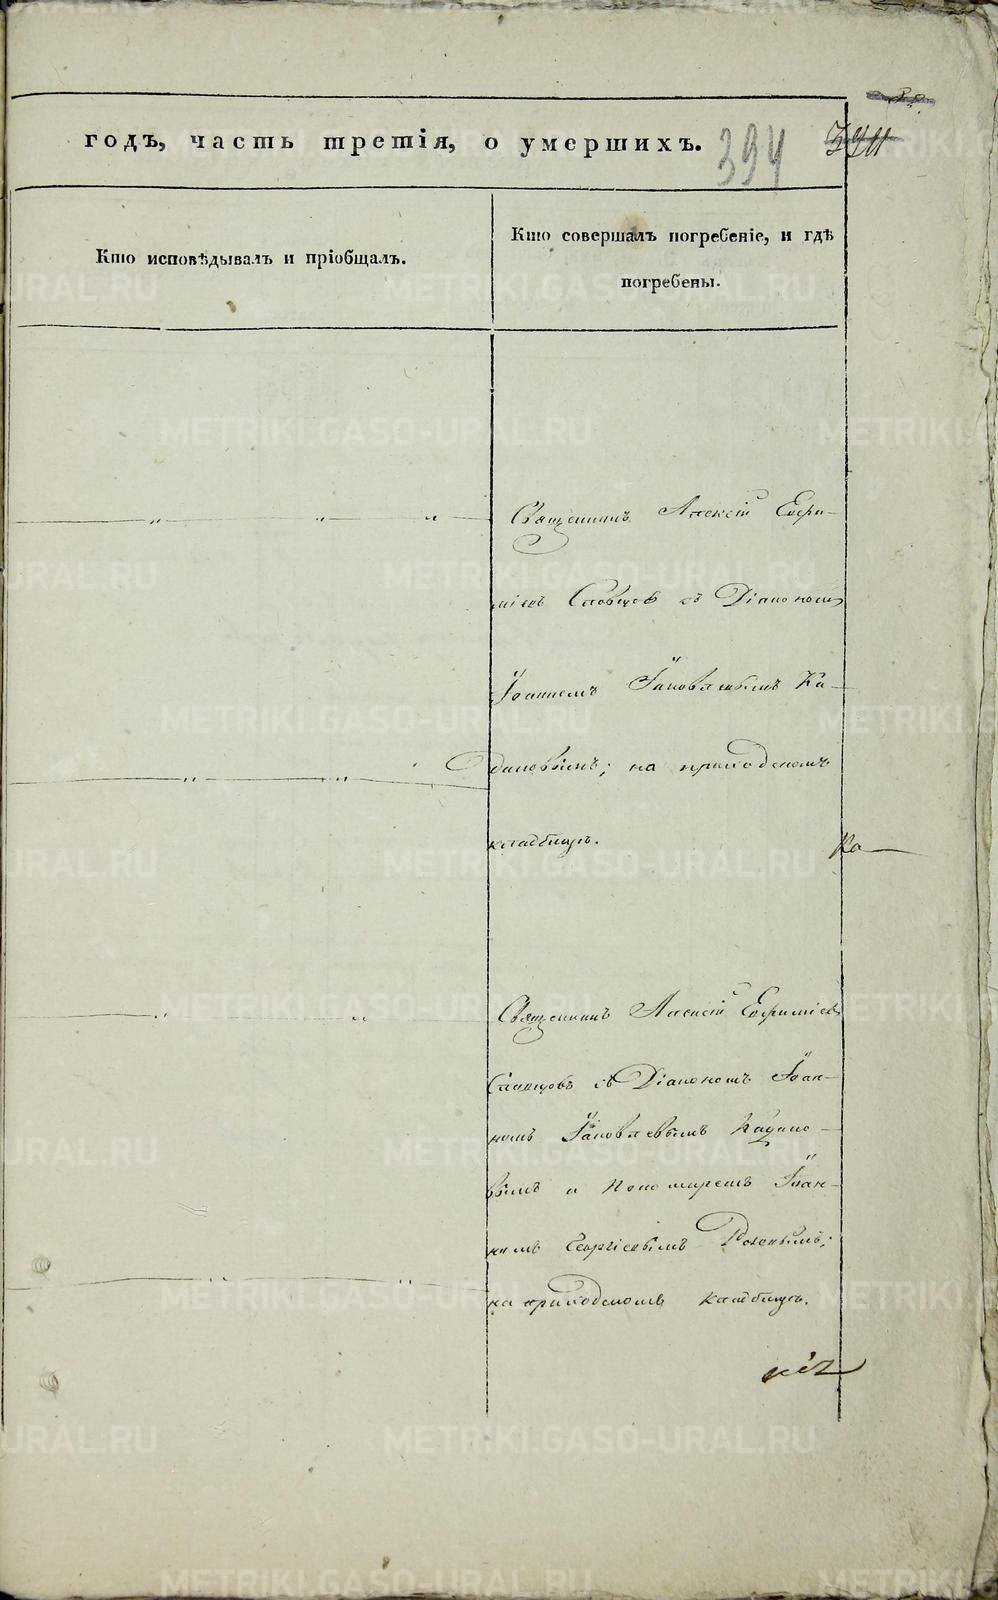 годъ, часть третія, о умершихъ.
394
Кто исповѣдывалъ и пріобщалъ.
Кто совершалъ погребеніе, и гдѣ
погребены.
Священникъ Алексій Ефи-
міевъ Словцов съ Діакономъ
Іоанномъ Іаковлевымъ Ка-
дановымъ; на приходскомъ
кладбищѣ.
Священникъ Алексій Ефиміев
Словцовъ съ Діакономъ Іоан-
номъ Іаковлевымъ Кадано-
вымъ и Пономаремъ Іоан-
номъ Георгіевымъ
на приходскомъ кладбищѣ.
METRIKI.GASO-URAL.RU